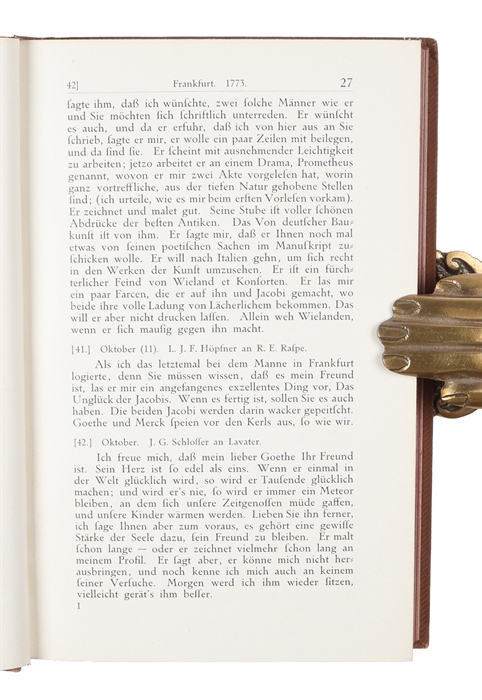 42] Frankfurt. 1773. 27
ſagte ihm, daß ich wünſchte, zwei ſolche Männer wie er
und Sie möchten ſich ſchriftlich unterreden. Er wünſcht
es auch, und da er erfuhr, daß ich von hier aus an Sie
ſchrieb, ſagte er mir, er wolle ein paar Zeilen mit beilegen,
und da ſind ſie. Er ſcheint mit ausnehmender Leichtigkeit
zu arbeiten; jetzo arbeitet er an einem Drama, Prometheus
genannt, wovon er mir zwei Akte vorgeleſen hat, worin
ganz vortreffliche, aus der tiefen Natur gehobene Stellen
ſind; (ich urteile, wie es mir beim erſten Vorleſen vorkam).
Er zeichnet und malet gut. Seine Stube iſt voller ſchönen
Abdrücke der beſten Antiken. Das Von deutſcher Bau⸗
kunſt iſt von ihm. Er ſagte mir, daß er Ihnen noch mal
etwas von ſeinen poetiſchen Sachen im Manuſkript zu⸗
ſchicken wolle. Er will nach Italien gehn, um ſich recht
in den Werken der Kunſt umzuſehen. Er iſt ein fürch⸗
terlicher Feind von Wieland et Konſorten. Er las mir
ein paar Farcen, die er auf ihn und Jacobi gemacht, wo
beide ihre volle Ladung von Lächerlichem bekommen. Das
will er aber nicht drucken laſſen. Allein weh Wielanden,
wenn er ſich mauſig gegen ihn macht.
[41.] Oktober (11). L. J. F. Höpfner an R. E. Raſpe.
Als ich das letztemal bei dem Manne in Frankfurt
logierte, denn Sie müſſen wiſſen, daß es mein Freund
iſt, las er mir ein angefangenes exzellentes Ding vor, Das
Unglück der Jacobis. Wenn es fertig iſt, ſollen Sie es auch
haben. Die beiden Jacobi werden darin wacker gepeitſcht.
Goethe und Merck ſpeien vor den Kerls aus, ſo wie wir.
[42.] Oktober. J. G. Schloſſer an Lavater.
Ich freue mich, daß mein lieber Goethe Ihr Freund
iſt. Sein Herz iſt ſo edel als eins. Wenn er einmal in
der Welt glücklich wird, ſo wird er Tauſende glücklich
machen; und wird er's nie, ſo wird er immer ein Meteor
bleiben, an dem ſich unſere Zeitgenoſſen müde gaffen,
und unſere Kinder wärmen werden. Lieben Sie ihn ferner,
ich ſage Ihnen aber zum voraus, es gehört eine gewiſſe
Stärke der Seele dazu, ſein Freund zu bleiben. Er malt
ſchon lange — oder er zeichnet vielmehr ſchon lang an
meinem Profil. Er ſagt aber, er könne mich nicht her⸗
ausbringen, und noch kenne ich mich auch an keinem
ſeiner Verſuche. Morgen werd ich ihm wieder ſitzen,
vielleicht gerät's ihm beſſer.
I